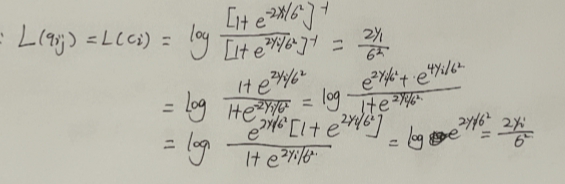 : L(qij) = L(ci) = log [1+e^-2yi/6²]^-1 / [1+e^2yi/6²]^-1 = 2yi/6²
= log 1+e^2yi/6² / 1+e^-2yi/6² = log e^2yi/6² + e^4yi/6² / 1+e^2yi/6²
= log e^2yi/6² [1+e^2yi/6²] / 1+e^2yi/6² = log e^2yi/6² = 2yi/6²